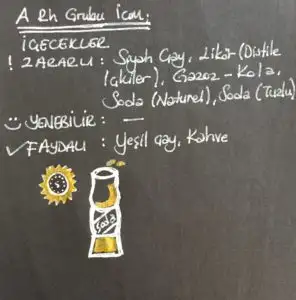 A Rh Grubu İçin;
İÇECEKLER
! ZARARLI : Siyah Çay, Likör (Distile
İçkiler), Gazoz - Kola,
Soda (Naturel), Soda (Tuzlu)
YENEBİLİR : —
✓ FAYDALI : Yeşil çay, Kahve
Soda